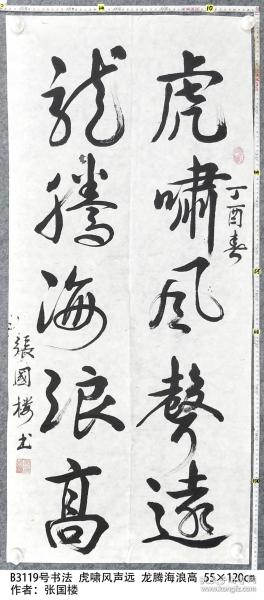 虎嘯风聲遠
丁酉春
龙騰海浪高
張國楼书
B3119号书法 虎啸风声远 龙腾海浪高 55×120cm
作者：张国楼